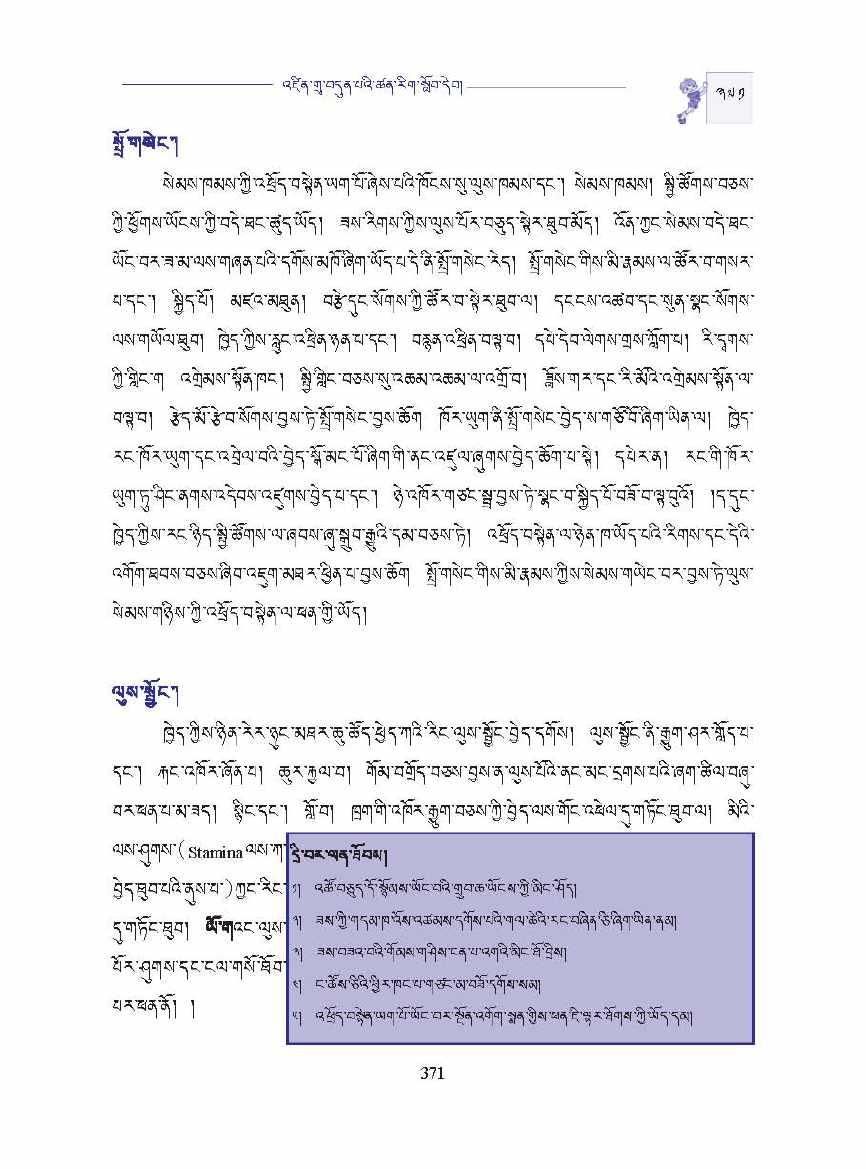 འཛིན་གྲྭ་བདུན་པའི་ཚན་རིག་སློབ་དེབ།
༣༧༡
སྤྲོ་གསེང་།
སེམས་ཁམས་ཀྱི་འཕྲོད་བསྟེན་ཡག་པོ་ཞེས་པའི་ཁོངས་སུ་ལུས་ཁམས་དང་། སེམས་ཁམས། སྤྱི་ཚོགས་བཅས་
ཀྱི་ཕྱོགས་ཡོངས་ཀྱི་བདེ་ཐང་ཚུད་ཡོད། ཟས་རིགས་ཀྱིས་ལུས་པོར་བཅུད་སྟེར་ཐུབ་མོད། འོན་ཀྱང་སེམས་བདེ་ཐང་
ཡོང་བར་ཟ་མ་ལས་གཞན་པའི་དགོས་མཁོ་ཞིག་ཡོད་པ་དེ་ནི་སྤྲོ་གསེང་རེད། སྤྲོ་གསེང་གིས་མི་རྣམས་ལ་ཚོར་བ་གསར་
པ་དང་། སྐྱིད་པོ། མཛའ་མཐུན། བརྩེ་དུང་སོགས་ཀྱི་ཚོར་བ་སྟེར་ཐུབ་ལ། དངངས་འཚབ་དང་སུན་སྣང་སོགས་
ལས་གཡོལ་ཐུབ། ཁྱེད་ཀྱིས་རླུང་འཕྲིན་ཉན་པ་དང་། བརྙན་འཕྲིན་བལྟ་བ། དཔེ་དེབ་ལེགས་གྲས་ཀློག་པ། རི་དྭགས་
ཀྱི་གླིང་ག འགྲེམས་སྟོན་ཁང་། སྤྱི་གླིང་བཅས་སུ་འཆམ་འཆམ་ལ་འགྲོ་བ། ཟློས་གར་དང་རི་མོའི་འགྲེམས་སྟོན་ལ་
བལྟ་བ། རྩེད་མོ་རྩེ་བ་སོགས་བྱས་ཏེ་སྤྲོ་གསེང་བྱས་ཆོག ཁོར་ཡུག་ནི་སྤྲོ་གསེང་བྱེད་ས་གཙོ་བོ་ཞིག་ཡིན་ལ། ཁྱེད་
རང་ཁོར་ཡུག་དང་འབྲེལ་བའི་བྱེད་སྒོ་མང་པོ་ཞིག་གི་ནང་འཛུལ་ཞུགས་བྱེད་ཆོག་པ་སྟེ། དཔེར་ན། རང་གི་ཁོར་
ཡུག་ཏུ་ཤིང་ནགས་འདེབས་འཛུགས་བྱེད་པ་དང་། ཉེ་འཁོར་གཙང་སྦྲ་བྱས་ཏེ་སྣང་བ་སྐྱིད་པོ་བཟོ་བ་ལྟ་བུའོ། །ད་དུང་
ཁྱེད་ཀྱིས་རང་ཉིད་སྤྱི་ཚོགས་ལ་ཞབས་ཞུ་སྒྲུབ་རྒྱུའི་དམ་བཅས་ཏེ། འཕྲོད་བསྟེན་ལ་ཉེན་ཁ་ཡོད་པའི་རིགས་དང་དེའི་
འགོག་ཐབས་བཅས་ཞིབ་འཇུག་མཐར་ཕྱིན་པ་བྱས་ཆོག སྤྲོ་གསེང་གིས་མི་རྣམས་ཀྱིས་སེམས་གཡེང་བར་བྱས་ཏེ་ལུས་
སེམས་གཉིས་ཀྱི་འཕྲོད་བསྟེན་ལ་ཕན་གྱི་ཡོད།
ལུས་སྦྱོང་།
ཁྱེད་ཀྱིས་ཉིན་རེར་ཉུང་མཐར་ཆུ་ཚོད་ཕྱེད་ཀའི་རིང་ལུས་སྦྱོང་བྱེད་དགོས། ལུས་སྦྱོང་ནི་རྒྱུག་ཤར་གློད་པ་
དང་། རྐང་འཁོར་ཞོན་པ། ཆུར་རྐྱལ་བ། གོམ་བགྲོད་བཅས་བྱས་ན་ལུས་པོའི་ནང་མང་དྲགས་པའི་ཞག་ཚིལ་བཞུ་
བར་ཕན་པ་མ་ཟད། སྙིང་དང་། གློ་བ། ཁྲག་གི་འཁོར་རྒྱུག་བཅས་ཀྱི་བྱེད་ལས་གོང་འཕེལ་དུ་གཏོང་ཐུབ་ལ། མིའི་
ལས་ཤུགས་ ( Stamina ལས་ཀ་
བྱེད་ཐུབ་པའི་ནུས་པ་ ) ཀྱང་རིང་
དུ་གཏོང་ཐུབ། ཡོ་གའང་ལུས་
པོར་ཤུགས་དང་ངལ་གསོ་ཐོབ་
པར་ཕན་ནོ། །
དྲི་བར་ལན་ཐོབས།
༡། འཚོ་བཅུད་དོ་སྙོམས་ཡོང་བའི་གྲུབ་ཆ་ཡོངས་ཀྱི་མིང་ཤོད།
༢། ཟས་ཀྱི་གདམ་ཁ་འོས་འཚམས་དགོས་པའི་གལ་ཆེའི་རང་བཞིན་ཅི་ཞིག་ཡིན་ནམ།
༣། ཟས་བཟའ་བའི་གོམས་གཤིས་ངན་པ་འགའི་མིང་ཐོ་བྲིས།
༤། ང་ཚོས་ཅིའི་ཕྱིར་ཁང་པ་གཙང་མ་བཟོ་དགོས་སམ།
༥། འཕྲོད་བསྟེན་ཡག་པོ་ཡོང་བར་སྔོན་འགོག་སྨན་གྱིས་ཕན་ཇི་ལྟར་ཐོགས་ཀྱི་ཡོད་དམ།
371